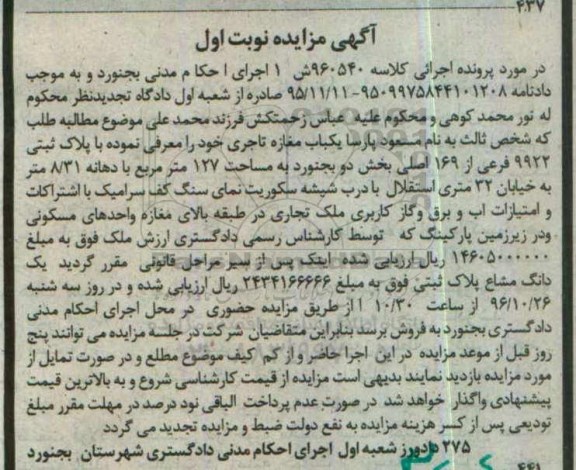 ۴۳۷
آگهی مزایده نوبت اول
در مورد پرونده اجرائی کلاسه ۹۶۰۵۴۰ش ۱ اجرای ا حکا م مدنی بجنورد و به موجب
دادنامه ۹۵۰۹۹۷۵۸۴۴۱۰۱۲۰۸-۹۵/۱۱/۱۱ صادره از شعبه اول دادگاه تجدیدنظر محکوم
له نور محمد کوهی و محکوم علیه عباس زحمتکش فرزند محمد علی موضوع مطالبه طلب
که شخص ثالث به نام مسعود پارسا یکباب مغازه تاجری خود را معرفی نموده با پلاک ثبتی
۹۹۲۲ فرعی از ۱۶۹ اصلی بخش دو بجنورد به مساحت ۱۲۷ متر مربع با دهانه ۸/۳۱ متر
به خیابان ۳۲ متری استقلال با درب شیشه سکوریت نمای سنگ کف سرامیک با اشتراکات
و امتیازات اب و برق وگاز کاربری ملک تجاری در طبقه بالای مغازه واحدهای مسکونی
ودر زیرزمین پارکینگ که توسط کارشناس رسمی دادگستری ارزش ملک فوق به مبلغ
۱۴۶۰۵۰۰۰۰۰۰ ریال ارزیابی شده اینک پس از سیر مراحل قانونی مقرر گردید یک
دانگ مشاع پلاک ثبتی فوق به مبلغ ۲۴۳۴۱۶۶۶۶۶ ریال ارزیابی شده و در روز سه شنبه
۹۶/۱۰/۲۶ از ساعت ۱۰/۳۰ از طریق مزایده حضوری در محل اجرای احکام مدنی
دادگستری بجنورد به فروش برسد بنابراین متقاضیان شرکت در جلسه مزایده می توانند پنج
روز قبل از موعد مزایده در این اجرا حاضر و از کم کیف موضوع مطلع و در صورت تمایل از
مورد مزایده بازدید نمایند بدیهی است مزایده از قیمت کارشناسی شروع و به بالاترین قیمت
پیشنهادی واگذار خواهد شد در صورت عدم پرداخت الباقی نود درصد در مهلت مقرر مبلغ
تودیعی پس از کسر هزینه مزایده به نفع دولت ضبط و مزایده تجدید می گردد
۲۷۵ دادورز شعبه اول اجرای احکام مدنی دادگستری شهرستان بجنورد
۴۴۱